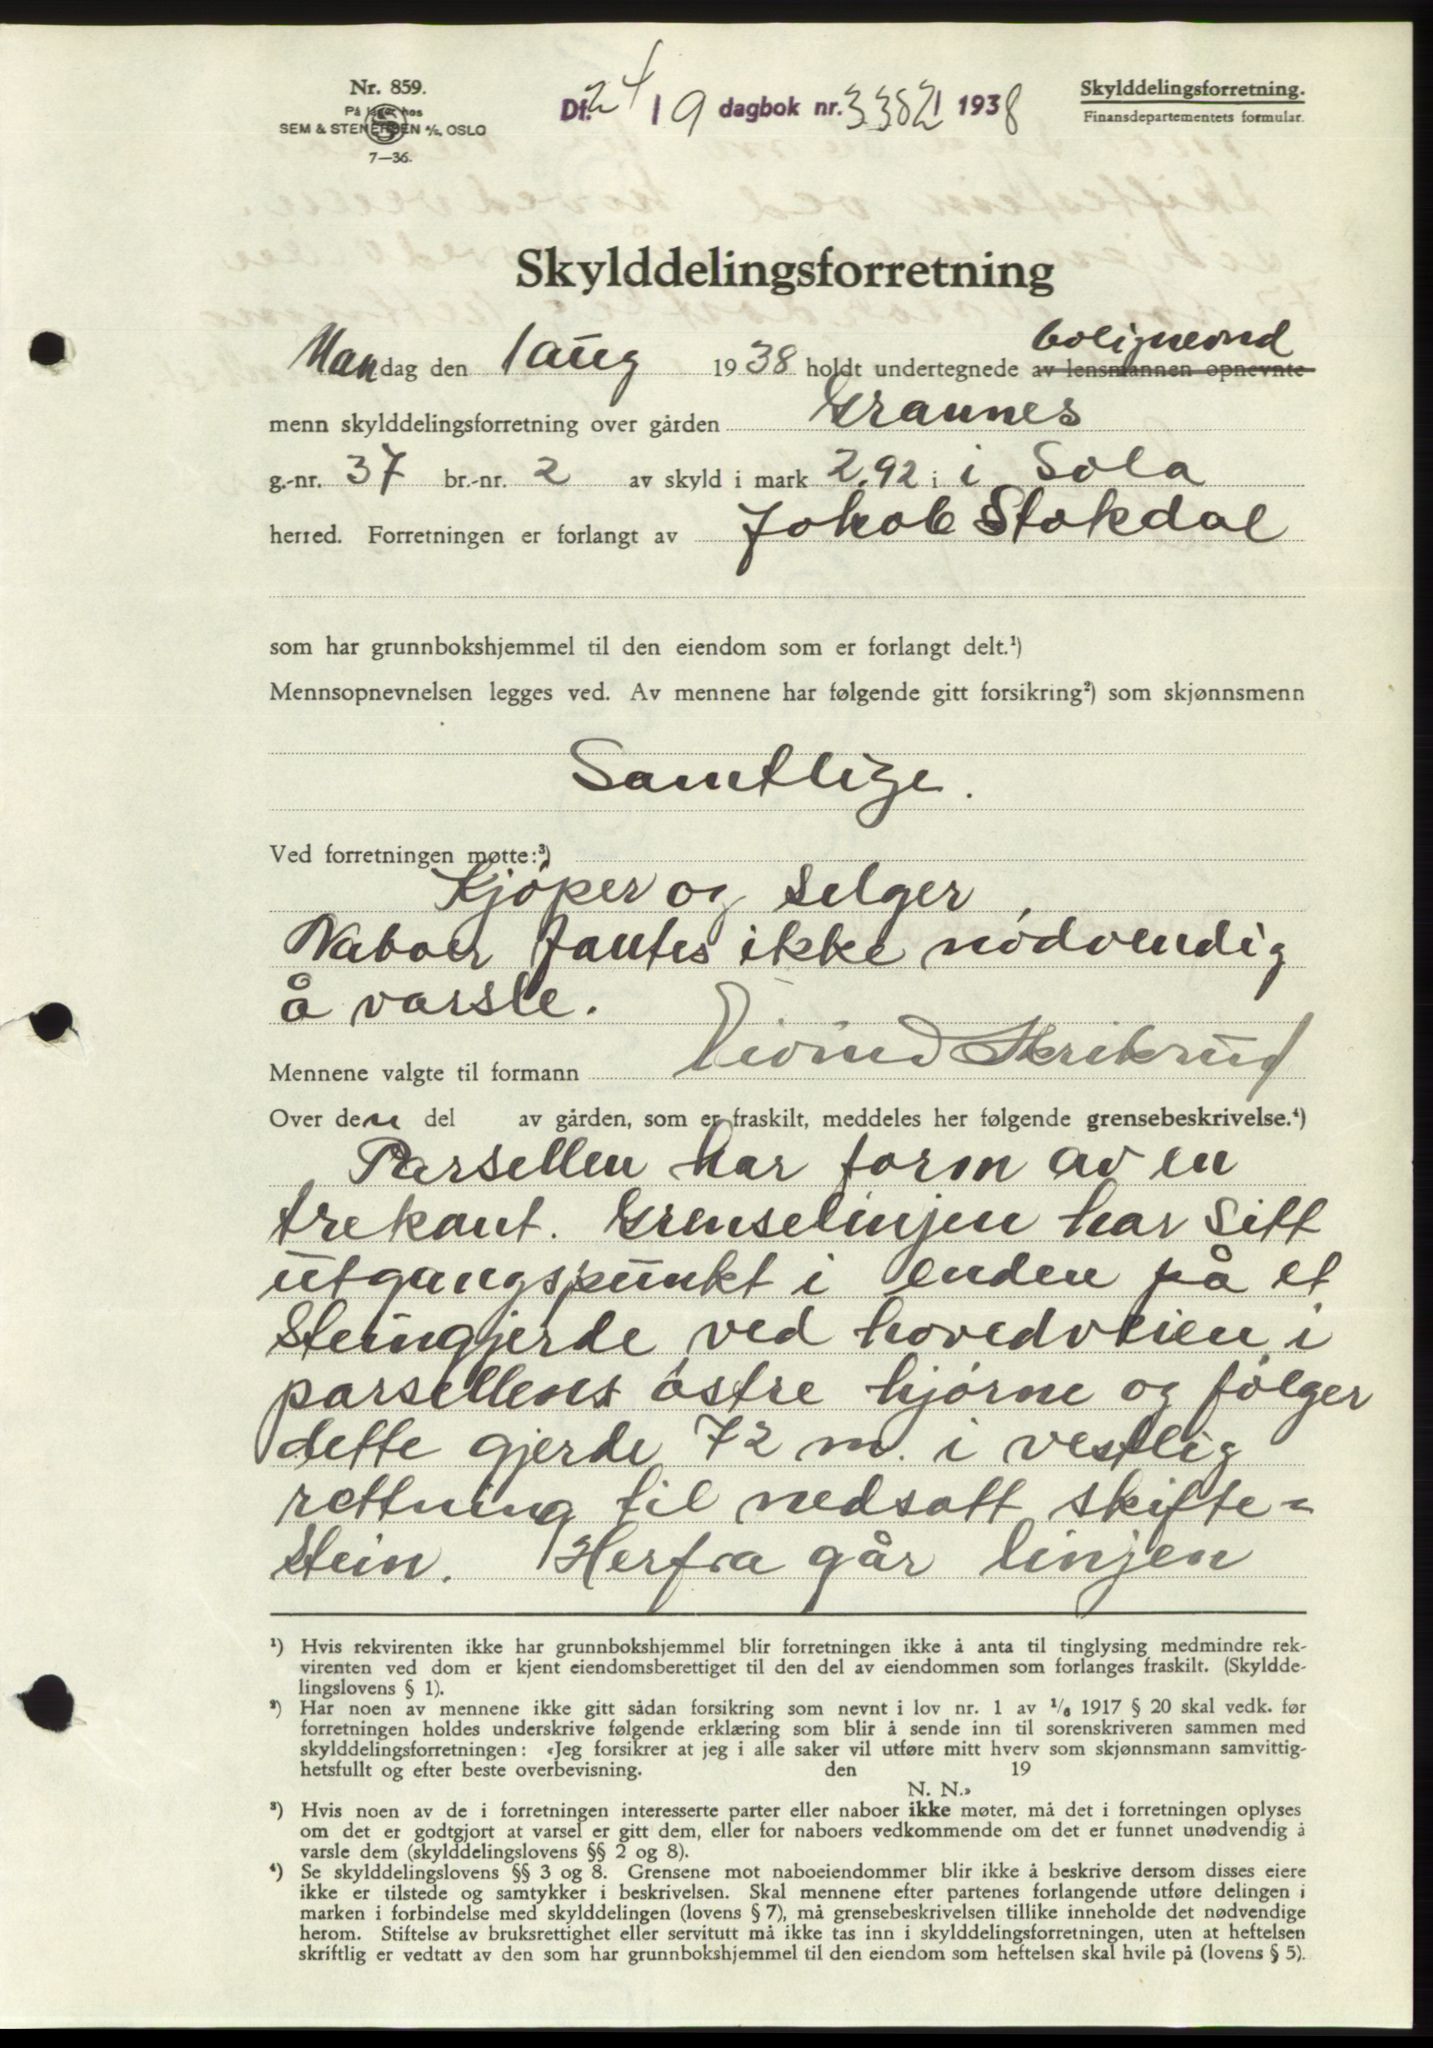 Nr. 859.
På lager hos
SEM & STENERSEN A/S, OSLO
7—36.
Df. 24/9 dagbok nr. 3382 1938
Skylddelingsforretning.
Finansdepartementets formular.
Skylddelingsforretning
bolignemnd
Mandag den 1 aug 1938 holdt undertegnede av lensmannen opnevnte
menn skylddelingsforretning over gården Grannes
g.-nr. 37 br.-nr. 2 av skyld i mark 2.92 i i Sola
herred. Forretningen er forlangt av Jakob Stokdal
som har grunnbokshjemmel til den eiendom som er forlangt delt.¹)
Mennsopnevnelsen legges ved. Av mennene har følgende gitt forsikring²) som skjønnsmenn
Samtlige.
Ved forretningen møtte:³)
Kjöper og selger
Naboer fantes ikke nödvendig
å varsle.
Mennene valgte til formann Eivind
Over den del av gården, som er fraskilt, meddeles her følgende grensebeskrivelse.⁴)
Parsellen har form av en
trekant. Grenselinjen har sitt
utgangspunkt i enden på et
steingjerde ved hovedveien i
parsellens östre hjörne og fölger
dette gjerde 72 m. i vestlig
rettning til nedsatt skifte=
stein. Herfra går linjen
¹) Hvis rekvirenten ikke har grunnbokshjemmel blir forretningen ikke å anta til tinglysing medmindre rek-
virenten ved dom er kjent eiendomsberettiget til den del av eiendommen som forlanges fraskilt. (Skyldde-
lingslovens § 1).
²) Har noen av mennene ikke gitt sådan forsikring som nevnt i lov nr. 1 av 1/6 1917 § 20 skal vedk. før
forretningen holdes underskrive følgende erklæring som blir å sende inn til sorenskriveren sammen med
skylddelingsforretningen: «Jeg forsikrer at jeg i alle saker vil utføre mitt hverv som skjønnsmann samvittig-
hetsfullt og efter beste overbevisning. den 19
N. N.»
³) Hvis noen av de i forretningen interesserte parter eller naboer ikke møter, må det i forretningen oplyses
om det er godtgjort at varsel er gitt dem, eller for naboers vedkommende om det er funnet unødvendig å
varsle dem (skylddelingslovens §§ 2 og 8).
⁴) Se skylddelingslovens §§ 3 og 8. Grensene mot naboeiendommer blir ikke å beskrive dersom disses eiere
ikke er tilstede og samtykker i beskrivelsen. Skal mennene efter partenes forlangende utføre delingen i
marken i forbindelse med skylddelingen (lovens § 7), må grensebeskrivelsen tillike inneholde det nødvendige
herom. Stiftelse av bruksrettighet eller servitutt må ikke tas inn i skylddelingsforretningen, uten at heftelsen
skriftlig er vedtatt av den som har grunnbokshjemmel til den eiendom som heftelsen skal hvile på (lovens § 5).